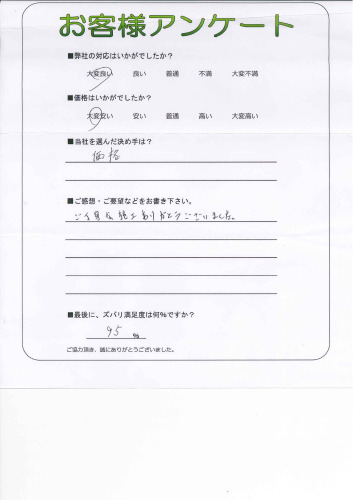 お客様アンケート
■弊社の対応はいかがでしたか？
大変良い 良い 普通 不満 大変不満
■価格はいかがでしたか？
大変安い 安い 普通 高い 大変高い
■当社を選んだ決め手は？
価格
■ご感想・ご要望などをお書き下さい。
ありがとうございました。
■最後に、ズバリ満足度は何%ですか？
95 %
ご協力頂き、誠にありがとうございました。